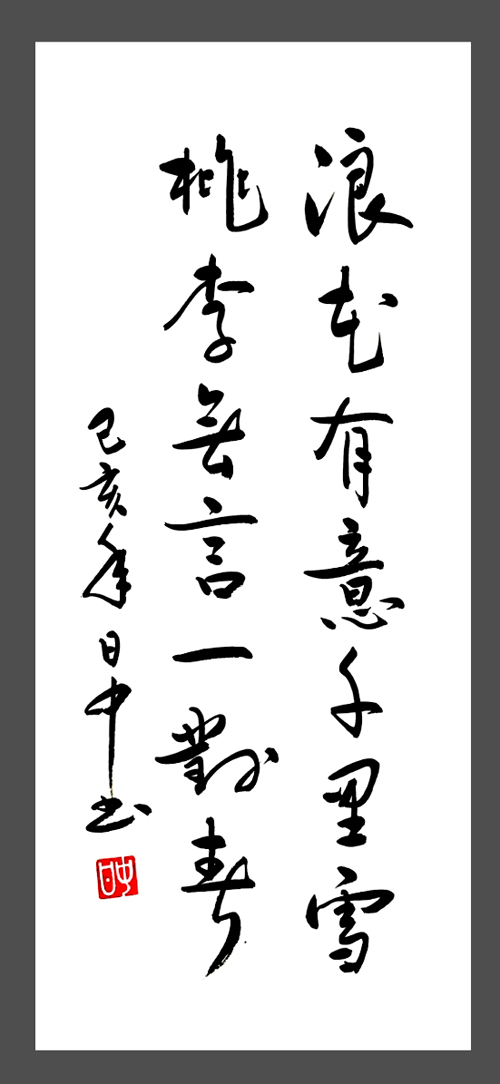 浪花有意千里雪
桃李無言一對春
己亥年日中书
日中